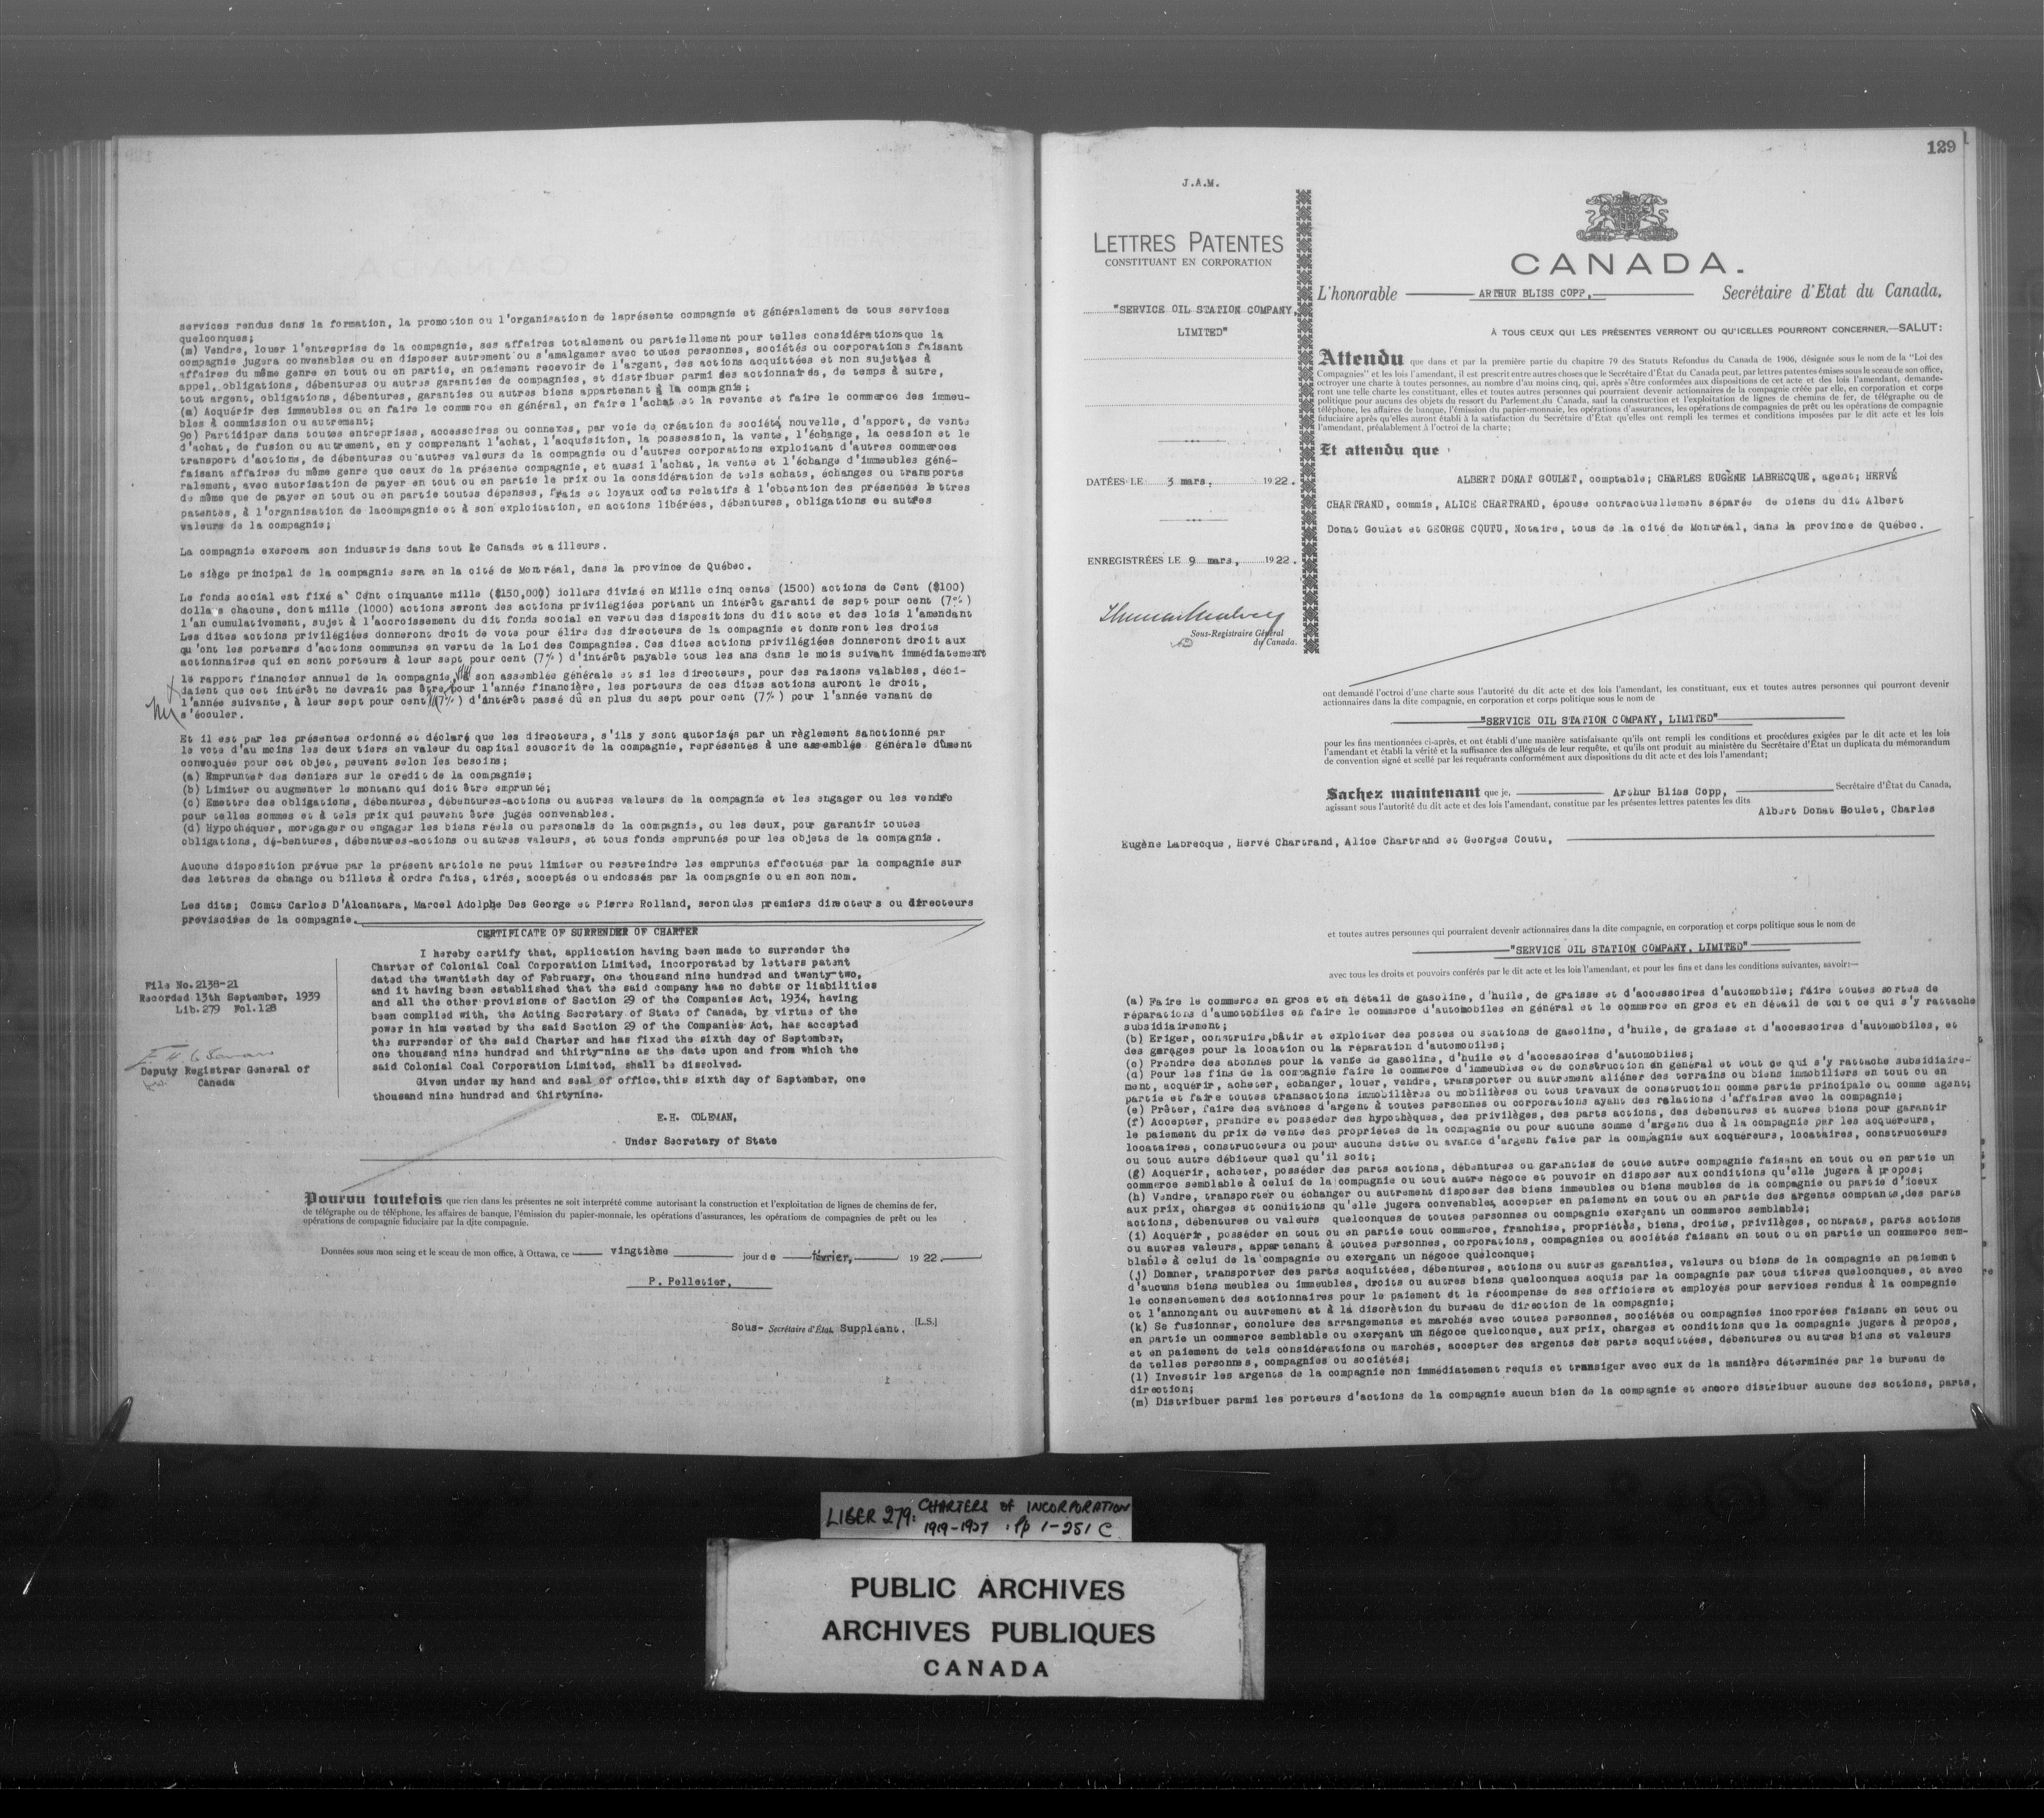 services rendus dans la formation, la promotion ou l'organisation de laprésente compagnie et généralement de tous services
quelconques;
(m) Vendre, louer l'entreprise de la compagnie, ses affaires totalement ou partiellement pour telles considérations que la
compagnie jugera convenables ou en disposer autrement ou s'amalgamer avec toutes personnes, sociétés ou corporations faisant
affaires du même genre en tout ou en partie, en paiement recevoir de l'argent, des actions acquittées et non sujettes à
appel, obligations, débentures ou autres garanties de compagnies, et distribuer parmi des actionnaires, de temps à autre,
tout argent, obligations, débentures, garanties ou autres biens appartenant à la compagnie;
(n) Acquérir des immeubles ou en faire le commerce en général, en faire l'achat et la revente et faire le commerce des immeu-
bles à commission ou autrement;
9o) Partidiper dans toutes entreprises, accessoires ou connexes, par voie de création de société nouvelle, d'apport, de vente
d'achat, de fusion ou autrement, en y comprenant l'achat, l'acquisition, la possession, la vente, l'échange, la cession et le
transport d'actions, de débentures ou autres valeurs de la compagnie ou d'autres corporations exploitant d'autres commerces
faisant affaires du même genre que ceux de la présente compagnie, et aussi l'achat, la vente et l'échange d'immeubles géné-
ralement, avec autorisation de payer en tout ou en partie le prix ou la considération de tels achats, échanges ou transports
de même que de payer en tout ou en partie toutes dépenses, frais et loyaux coûts relatifs à l'obtention des présentes lettres
patentes, à l'organisation de lacompagnie et à son exploitation, en actions libérées, débentures, obligations ou autres
valeurs de la compagnie;
La compagnie exercera son industrie dans tout le Canada et ailleurs.
Le siège principal de la compagnie sera en la cité de Montréal, dans la province de Québec.
Le fonds social est fixé a` Cent cinquante mille ($150,000) dollars divisé en Mille cinq cents (1500) actions de Cent ($100)
dollars chacune, dont mille (1000) actions seront des actions privilégiées portant un intérêt garanti de sept pour cent (7%)
l'an cumulativement, sujet à l'accroissement du dit fonds social en vertu des dispositions du dit acte et des lois l'amendant
Les dites actions privilégiées donneront droit de vote pour élire des directeurs de la compagnie et donneront les droits
qu'ont les porteurs d'actions communes en vertu de la Loi des Compagnies. Ces dites actions privilégiées donneront droit aux
actionnaires qui en sont porteurs à leur sept pour cent (7%) d'intérêt payable tous les ans dans le mois suivant immédiatement
le rapport financier annuel de la compagnie, à son assemblée générale et si les directeurs, pour des raisons valables, déci-
daient que cet intérêt ne devrait pas être pour l'année financière, les porteurs de ces dites actions auront le droit,
l'année suivante, à leur sept pour cent (7%) d'intérêt passé dû en plus du sept pour cent (7%) pour l'année venant de
s'écouler.
Et il est par les présentes ordonné et déclaré que les directeurs, s'ils y sont autorisés par un règlement sanctionné par
le vote d'au moins les deux tiers en valeur du capital souscrit de la compagnie, représentés à une assemblée générale dûment
convoquée pour cet objet, peuvent selon les besoins;
(a) Emprunter des deniers sur le crédit de la compagnie;
(b) Limiter ou augmenter le montant qui doit être emprunté;
(c) Emettre des obligations, débentures, débentures-actions ou autres valeurs de la compagnie et les engager ou les vendre
pour telles sommes et à tels prix qui peuvent être jugés convenables.
(d) Hypothéquer, mortgager ou engager les biens réels ou personels de la compagnie, ou les deux, pour garantir toutes
obligations, dé-bentures, débentures-actions ou autres valeurs, et tous fonds empruntés pour les objets de la compagnie.
Aucune disposition prévue par le présent article ne peut limiter ou restreindre les emprunts effectués par la compagnie sur
des lettres de change ou billets à ordre faits, tirés, acceptés ou endossés par la compagnie ou en son nom.
Les dits; Comte Carlos D'Alcantara, Marcel Adolphe Des George et Pierre Rolland, serontles premiers directeurs ou directeurs
provisoires de la compagnie.
CERTIFICATE OF SURRENDER OF CHARTER
I hereby certify that, application having been made to surrender the
Charter of Colonial Coal Corporation Limited, incorporated by letters patent
dated the twentieth day of February, one thousand nine hundred and twenty-two,
and it having been established that the said company has no debts or liabilities
and all the other provisions of Section 29 of the Companies Act, 1934, having
been complied with, the Acting Secretary of State of Canada, by virtue of the
power in him vested by the said Section 29 of the Companies Act, has accepted
the surrender of the said Charter and has fixed the sixth day of September,
one thousand nine hundred and thirty-nine as the date upon and from which the
said Colonial Coal Corporation Limited, shall be dissolved.
Given under my hand and seal of office, this sixth day of September, one
thousand nine hundred and thirtynine.
E.H. COLEMAN,
Under Secretary of State
File No. 2138-21
Recorded 13th September, 1939
Lib. 279 Fol. 128
Deputy Registrar General of
Canada
Pourvu toutefois que rien dans les présentes ne soit interprété comme autorisant la construction et l'exploitation de lignes de chemins de fer,
de télégraphe ou de téléphone, les affaires de banque, l'émission du papier-monnaie, les opérations d'assurances, les opérations de compagnies de prêt ou les
opérations de compagnie fiduciaire par la dite compagnie.
Données sous mon seing et le sceau de mon office, à Ottawa, ce vingtième jour de février, 1922.
P. Pelletier,
Sous-Secrétaire d'État Suppléant. [L.S.]
129
J.A.M.
LETTRES PATENTES
CONSTITUANT EN CORPORATION
"SERVICE OIL STATION COMPANY,
LIMITED"
DATÉES LE 3 mars, 1922.
ENREGISTRÉES LE 9 mars, 1922.
Sous-Registraire Général
du Canada.
CANADA.
L'honorable ARTHUR BLISS COPP, Secrétaire d'Etat du Canada,
À TOUS CEUX QUI LES PRÉSENTES VERRONT OU QU'ICELLES POURRONT CONCERNER,—SALUT:
Attendu que dans et par la première partie du chapitre 79 des Statuts Refondus du Canada de 1906, désignée sous le nom de la "Loi des
Compagnies" et les lois l'amendant, il est prescrit entre autres choses que le Secrétaire d'État du Canada peut, par lettres patentes émises sous le sceau de son office,
octroyer une charte à toutes personnes, au nombre d'au moins cinq, qui, après s'être conformées aux dispositions de cet acte et des lois l'amendant, demande-
ront une telle charte les constituant, elles et toutes autres personnes qui pourraient devenir actionnaires de la compagnie créée par elle, en corporation et corps
politique pour aucuns des objets du ressort du Parlement du Canada, sauf la construction et l'exploitation de lignes de chemins de fer, de télégraphe ou de
téléphone, les affaires de banque, l'émission du papier-monnaie, les opérations d'assurances, les opérations de compagnies de prêt ou les opérations de compagnie
fiduciaire après qu'elles auront établi à la satisfaction du Secrétaire d'État qu'elles ont rempli les termes et conditions imposées par le dit acte et les lois
l'amendant, préalablement à l'octroi de la charte;
Et attendu que
ALBERT DONAT GOULET, comptable; CHARLES EUGÈNE LABRECQUE, agent; HERVÉ
CHARTRAND, commis, ALICE CHARTRAND, épouse contractuellement séparée de biens du dit Albert
Donat Goulet et GEORGE COUTU, Notaire, tous de la cité de Montréal, dans la province de Québec.
ont demandé l'octroi d'une charte sous l'autorité du dit acte et des lois l'amendant, les constituant, eux et toutes autres personnes qui pourront devenir
actionnaires dans la dite compagnie, en corporation et corps politique sous le nom de
"SERVICE OIL STATION COMPANY, LIMITED"
pour les fins mentionnées ci-après, et ont établi d'une manière satisfaisante qu'ils ont rempli les conditions et procédures exigées par le dit acte et les lois
l'amendant et établi la vérité et la suffisance des allégués de leur requête, et qu'ils ont produit au ministère du Secrétaire d'État un duplicata du mémorandum
de convention signé et scellé par les requérants conformément aux dispositions du dit acte et des lois l'amendant;
Sachez maintenant que je, Arthur Bliss Copp, Secrétaire d'État du Canada,
agissant sous l'autorité du dit acte et des lois l'amendant, constitue par les présentes lettres patentes les dits Albert Donat Goulet, Charles
Eugène Labrecque, Hervé Chartrand, Alice Chartrand et Georges Coutu,
et toutes autres personnes qui pourraient devenir actionnaires dans la dite compagnie, en corporation et corps politique sous le nom de
"SERVICE OIL STATION COMPANY, LIMITED"
avec tous les droits et pouvoirs conférés par le dit acte et les lois l'amendant, et pour les fins et dans les conditions suivantes, savoir:—
(a) Faire le commerce en gros et en détail de gasoline, d'huile, de graisse et d'accessoires d'automobile; faire toutes sortes de
réparations d'aumotobiles en faire le commerce d'automobiles en général et le commerce en gros et en détail de tout ce qui s'y rattache
subsidiairement;
(b) Eriger, construire, bâtir et exploiter des postes ou stations de gasoline, d'huile, de graisse et d'accessoires d'automobiles, et
des garages pour la location ou la réparation d'automobiles;
(c) Prendre des abonnés pour la vente de gasoline, d'huile et d'accessoires d'automobiles;
(d) Pour les fins de la compagnie faire le commerce d'immeubles et de construction en général et tout ce qui s'y rattache subsidiaire-
ment, acquérir, acheter, échanger, louer, vendre, transporter ou autrement aliéner des terrains ou biens immobiliers en tout ou en
partie et faire toutes transactions immobilières ou mobilières ou tous travaux de construction comme partie principale ou comme agent;
(e) Prêter, faire des avances d'argent à toutes personnes ou corporations ayant des relations d'affaires avec la compagnie;
(f) Accepter, prendre et posséder des hypothèques, des privilèges, des parts actions, des débentures et autres biens pour garantir
le paiement du prix de vente des propriétés de la compagnie ou pour aucune somme d'argent due à la compagnie par les acquéreurs,
locataires, constructeurs ou pour aucune dette ou avance d'argent faite par la compagnie aux acquéreurs, locataires, constructeurs
ou tout autre débiteur quel qu'il soit;
(g) Acquérir, acheter, posséder des parts actions, débentures ou garanties de toute autre compagnie faisant en tout ou en partie un
commerce semblable à celui de la compagnie ou tout autre négoce et pouvoir en disposer aux conditions qu'elle jugera à propos;
(h) Vendre, transporter ou échanger ou autrement disposer des biens immeubles ou biens meubles de la compagnie ou partie d'iceux
aux prix, charges et conditions qu'elle jugera convenables, accepter en paiement en tout ou en partie des argents comptants, des parts
actions, débentures ou valeurs quelconques de toutes personnes ou compagnie exerçant un commerce semblable;
(i) Acquérir, posséder en tout ou en partie tout commerce, franchise, propriétés, biens, droits, privilèges, contrats, parts actions
ou autres valeurs, appartenant à toutes personnes, corporations, compagnies ou sociétés faisant en tout ou en partie un commerce sem-
blable à celui de la compagnie ou exerçant un négoce quelconque;
(j) Donner, transporter des parts acquittées, débentures, actions ou autres garanties, valeurs ou biens de la compagnie en paiement
d'aucuns biens meubles ou immeubles, droits ou autres biens quelconques acquis par la compagnie par tous titres quelconques, et avec
le consentement des actionnaires pour le paiement et la récompense de ses officiers et employés pour services rendus à la compagnie
et l'annonçant ou autrement et à la discrétion du bureau de direction de la compagnie;
(k) Se fusionner, conclure des arrangements et marchés avec toutes personnes, sociétés ou compagnies incorporées faisant en tout ou
en partie un commerce semblable ou exerçant un négoce quelconque, aux prix, charges et conditions que la compagnie jugera à propos,
et en paiement de tels considérations ou marchés, accepter des argents des parts acquittées, débentures ou autres biens et valeurs
de telles personnes, compagnies ou sociétés;
(l) Investir les argents de la compagnie non immédiatement requis et transiger avec eux de la manière déterminée par le bureau de
direction;
(m) Distribuer parmi les porteurs d'actions de la compagnie aucun bien de la compagnie et encore distribuer aucune des actions, parts,
LIBER 279: CHARTERS OF INCORPORATION
1919-1927 : pp 1-251 C
PUBLIC ARCHIVES
ARCHIVES PUBLIQUES
CANADA